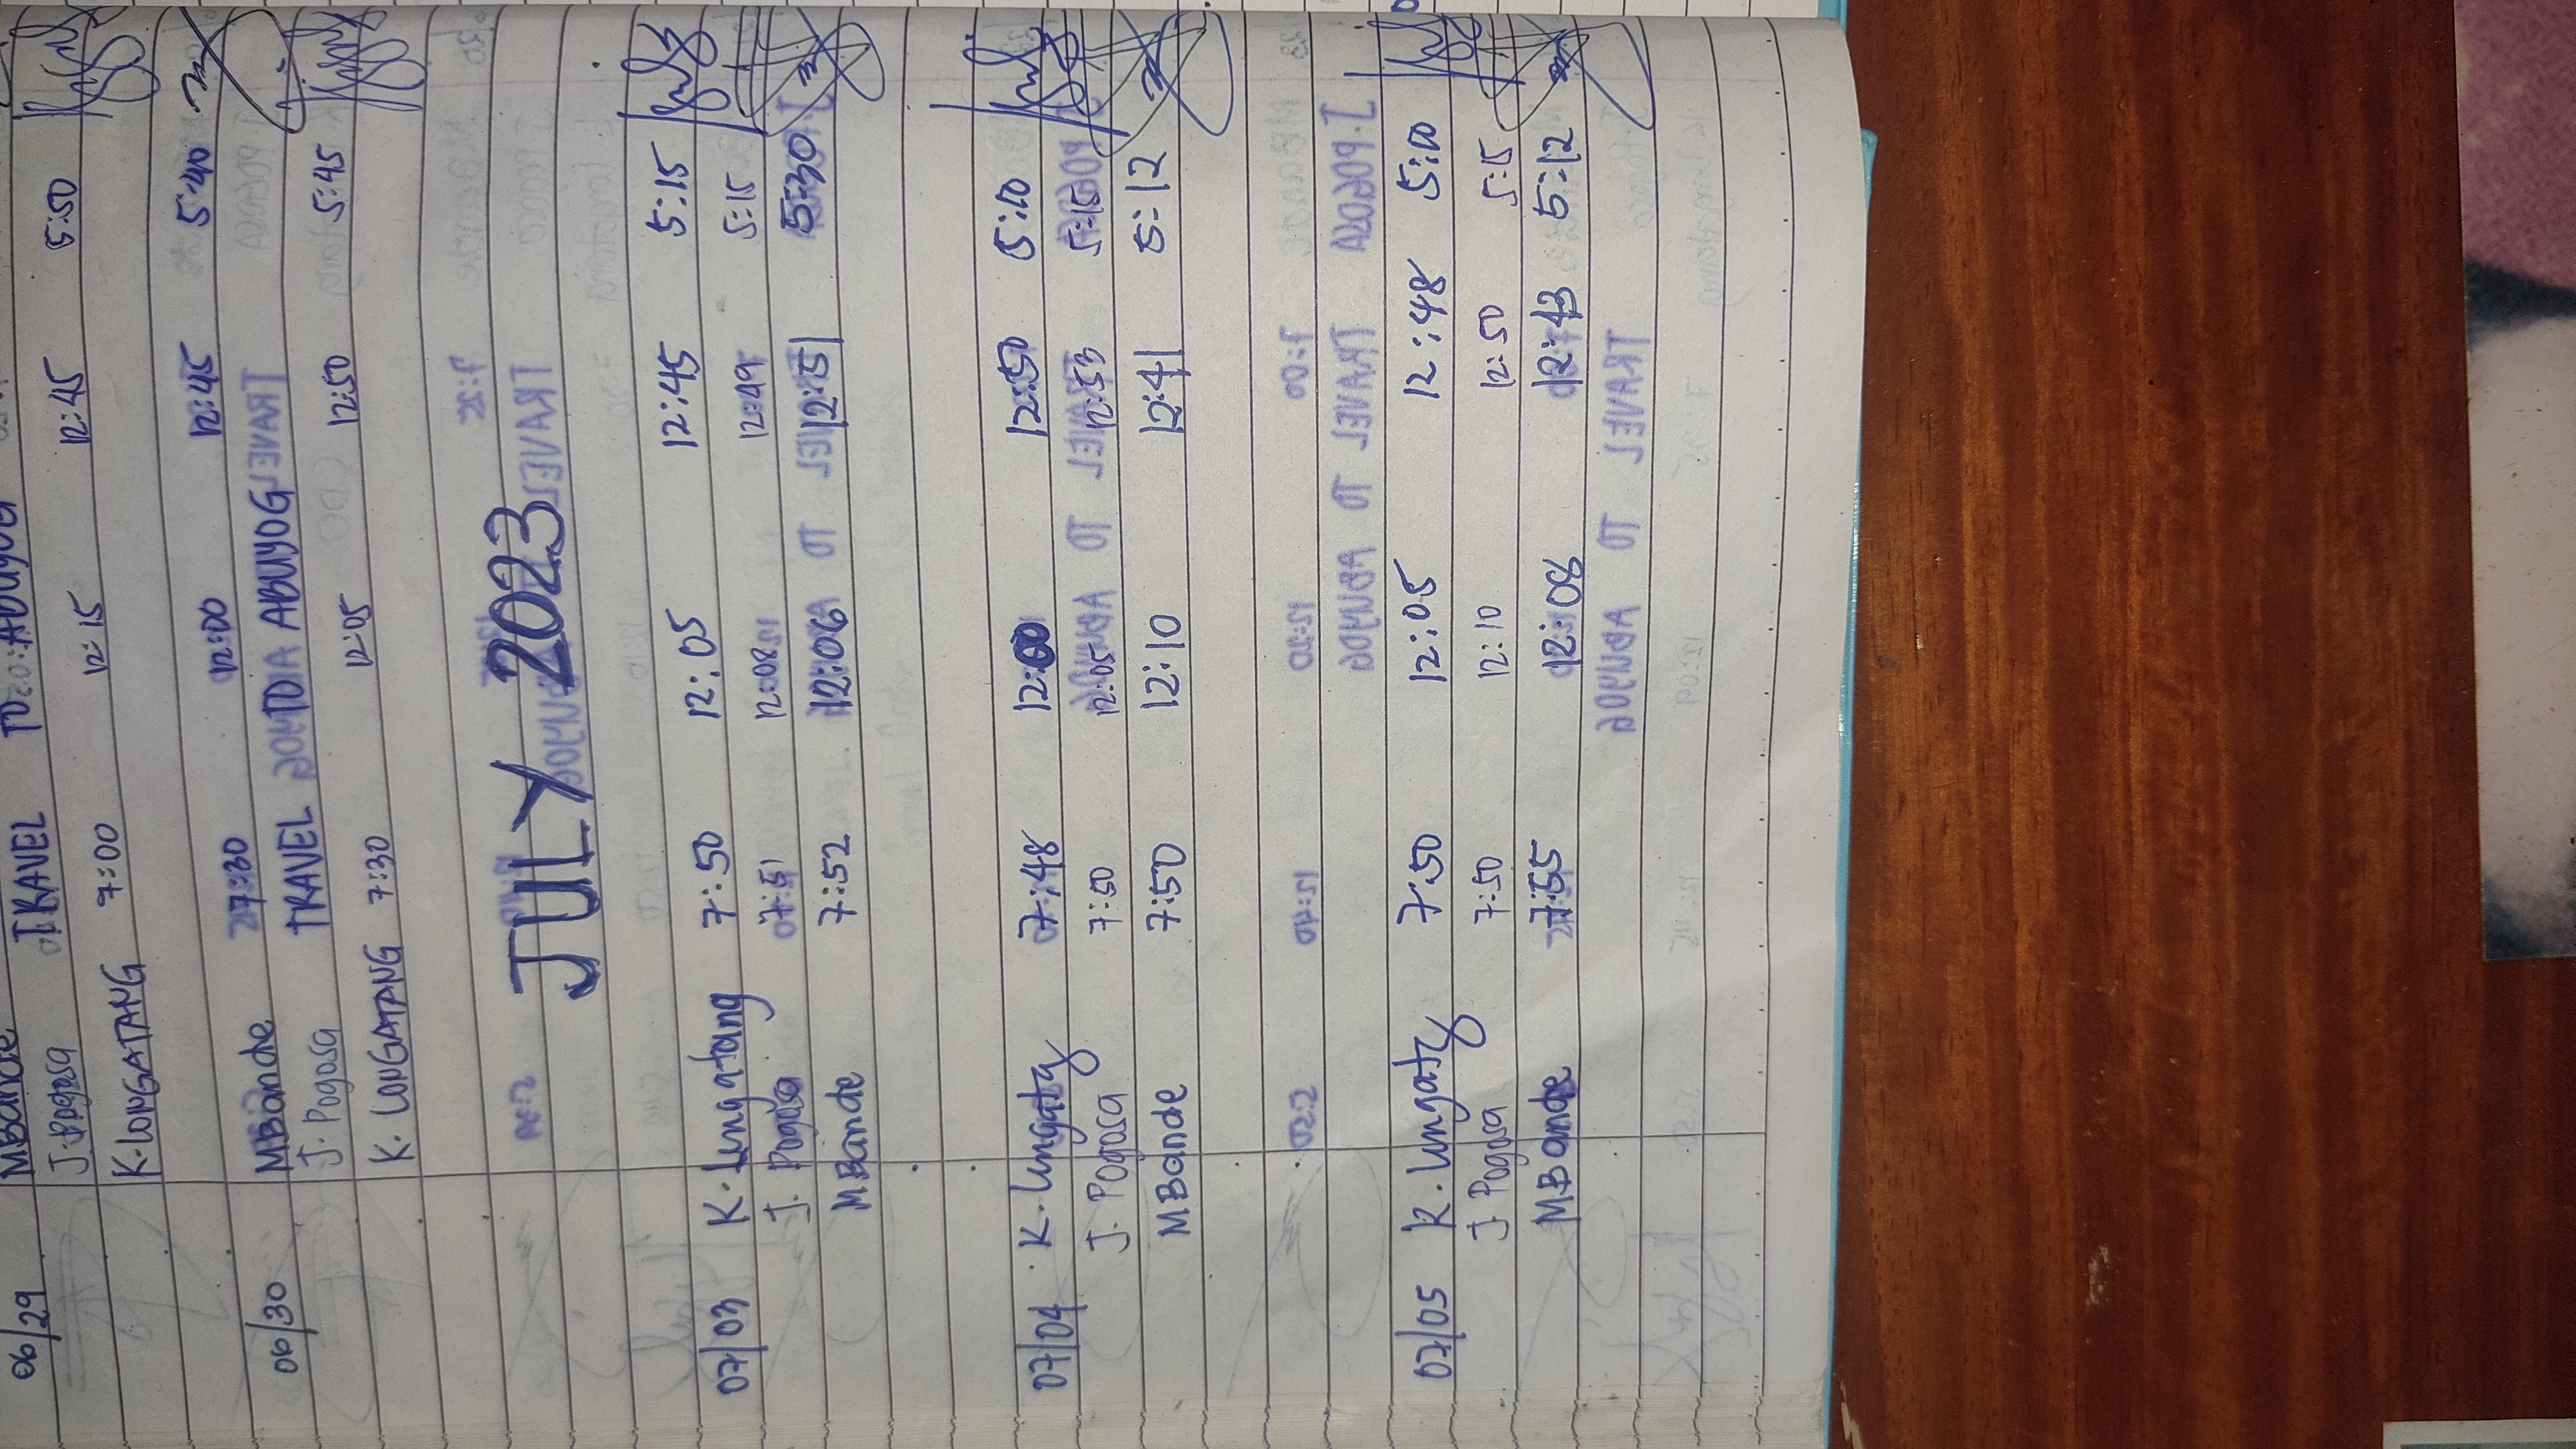 06/29 MBande TRAVEL TO ABUYOG
J. Pogosa 12:15 12:45 5:50
K. LONGATANG 7:00
MBande 7:30 12:00 12:45 5:40
06/30 J. Pogosa TRAVEL TO ABUYOG
K. LONGATANG 7:30 12:05 12:50 5:45
JULY 2023
07/03 K. Lungatang 7:50 12:05 12:45 5:15
J. Pogosa 7:51 12:08 12:49 5:15
MBande 7:52 12:06 12:51 5:30
07/04 K. Lungatg 7:48 12:00 12:50 5:10
J. Pogosa 7:50 12:05 12:53 5:15
MBande 7:50 12:10 12:41 5:12
07/05 K. Lungatg 7:50 12:05 12:48 5:00
J. Pogosa 7:50 12:10 12:50 5:15
MBande 7:55 12:08 12:43 5:12